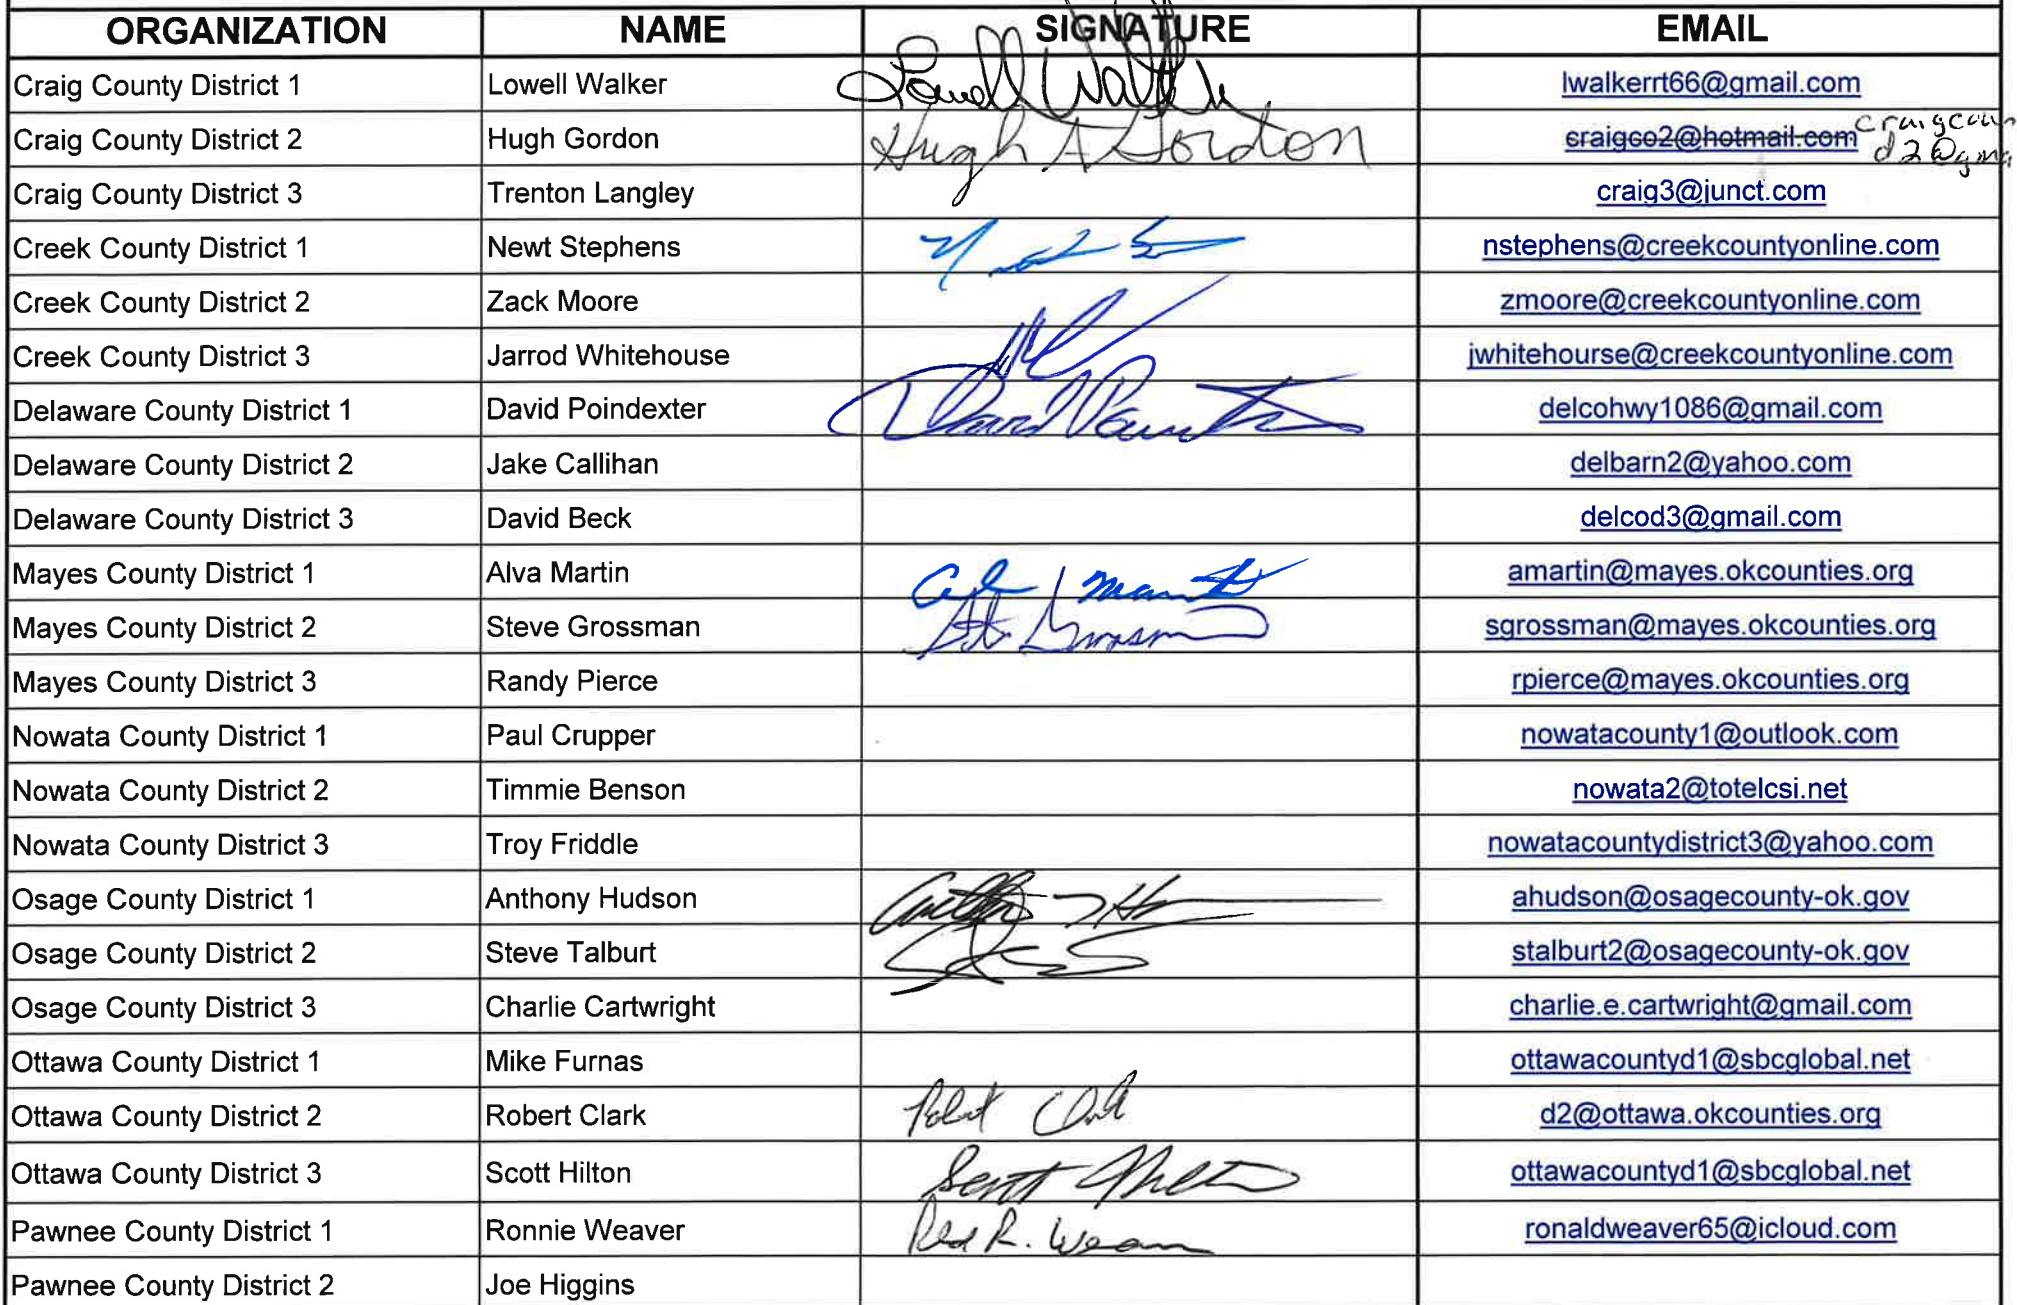 ORGANIZATION NAME SIGNATURE EMAIL
Craig County District 1 Lowell Walker Lowell Walker lwalkerrt66@gmail.com
Craig County District 2 Hugh Gordon Hugh A Gordon craigco2@hotmail.com craigcoun
d2@gma
Craig County District 3 Trenton Langley craig3@junct.com
Creek County District 1 Newt Stephens nstephens@creekcountyonline.com
Creek County District 2 Zack Moore zmoore@creekcountyonline.com
Creek County District 3 Jarrod Whitehouse jwhitehourse@creekcountyonline.com
Delaware County District 1 David Poindexter David delcohwy1086@gmail.com
Delaware County District 2 Jake Callihan delbarn2@yahoo.com
Delaware County District 3 David Beck delcod3@gmail.com
Mayes County District 1 Alva Martin amartin@mayes.okcounties.org
Mayes County District 2 Steve Grossman sgrossman@mayes.okcounties.org
Mayes County District 3 Randy Pierce rpierce@mayes.okcounties.org
Nowata County District 1 Paul Crupper nowatacounty1@outlook.com
Nowata County District 2 Timmie Benson nowata2@totelcsi.net
Nowata County District 3 Troy Friddle nowatacountydistrict3@yahoo.com
Osage County District 1 Anthony Hudson ahudson@osagecounty-ok.gov
Osage County District 2 Steve Talburt stalburt2@osagecounty-ok.gov
Osage County District 3 Charlie Cartwright charlie.e.cartwright@gmail.com
Ottawa County District 1 Mike Furnas ottawacountyd1@sbcglobal.net
Ottawa County District 2 Robert Clark d2@ottawa.okcounties.org
Ottawa County District 3 Scott Hilton Scott Hilton ottawacountyd1@sbcglobal.net
Pawnee County District 1 Ronnie Weaver R. Weaver ronaldweaver65@icloud.com
Pawnee County District 2 Joe Higgins